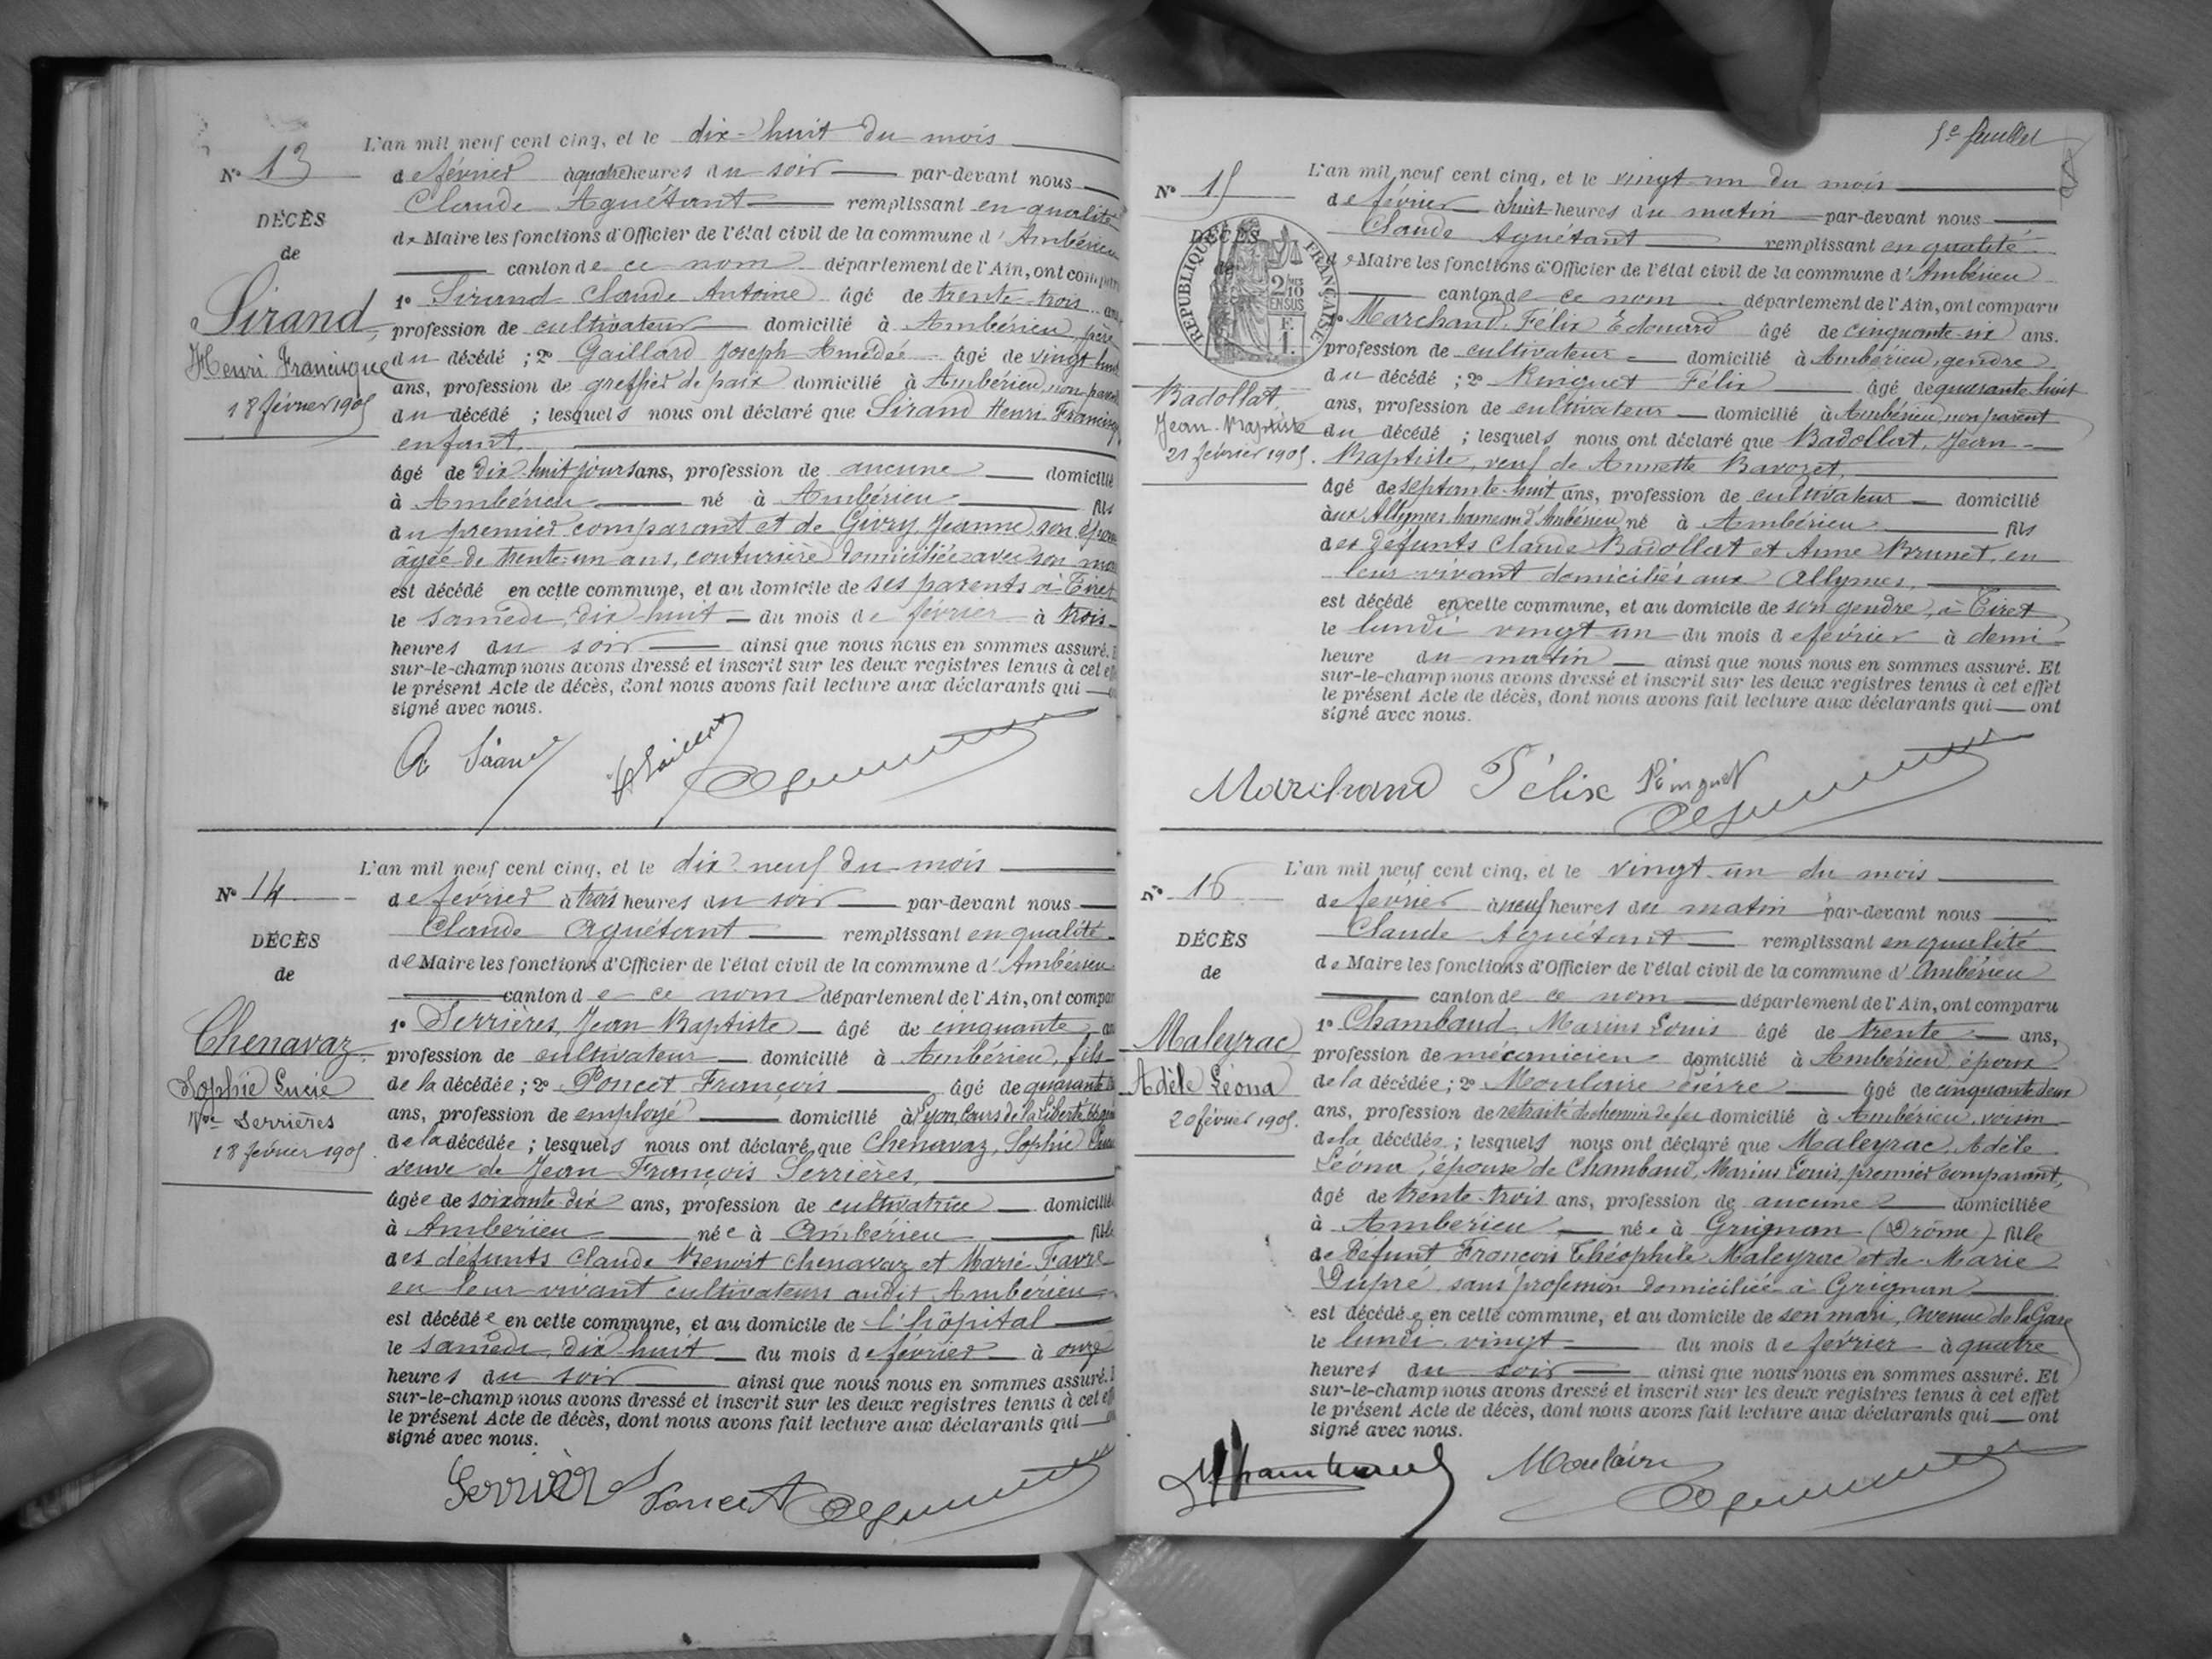 L'an mil neuf cent cinq, et le dix-huit du mois
N° 13 de février à quatre heures du soir par-devant nous
Claude Aguétant remplissant en qualité
DÉCÈS
de Maire les fonctions d'Officier de l'état civil de la commune d'Ambérieu
de
canton de ce nom département de l'Ain, ont comparu
1° Sirand Claude Antoine âgé de trente-trois ans
Sirand,
profession de cultivateur domicilié à Ambérieu, père
Henri Francisque
du décédé ; 2° Gaillard Joseph Amédée âgé de vingt huit
ans, profession de greffier de paix domicilié à Ambérieu, non parent
18 février 1905
du décédé ; lesquels nous ont déclaré que Sirand Henri Francisque
enfant.
âgé de dix huit jours ans, profession de aucune domicilié
à Ambérieu né à Ambérieu fils
du premier comparant et de Givry Jeanne, son épouse
âgée de trente-un ans, couturière domiciliée avec son mari
est décédé en cette commune, et au domicile de ses parents à Tiret
le samedi, dix-huit du mois de février à trois
heures du soir ainsi que nous nous en sommes assuré.
sur-le-champ nous avons dressé et inscrit sur les deux registres tenus à cet effet
le présent Acte de décès, dont nous avons fait lecture aux déclarants qui
signé avec nous.
A Sirand Gaillard
L'an mil neuf cent cinq, et le dix-neuf du mois
N° 14 de février à trois heures du soir par-devant nous
Claude Aguétant remplissant en qualité
DÉCÈS
de Maire les fonctions d'Officier de l'état civil de la commune d'Ambérieu
de
canton de ce nom département de l'Ain, ont comparu
1° Serrières, Jean Baptiste âgé de cinquante ans
Chenavaz
profession de cultivateur domicilié à Ambérieu, fils
Sophie Lucie
de la décédée ; 2° Poncet François âgé de quarante
Vve Serrières
ans, profession de employé domicilié à Lyon, Cours de la Liberté
18 février 1905.
de la décédée ; lesquels nous ont déclaré que Chenavaz, Sophie Lucie
veuve de Jean François Serrières,
âgée de soixante-dix ans, profession de cultivatrice domiciliée
à Ambérieu née à Ambérieu fille
des défunts Claude Benoit Chenavaz et Marie Favre
en leur vivant cultivateurs audit Ambérieu
est décédée en cette commune, et au domicile de l'hôpital
le samedi, dix huit du mois de février à onze
heures du soir ainsi que nous nous en sommes assuré.
sur-le-champ nous avons dressé et inscrit sur les deux registres tenus à cet effet
le présent Acte de décès, dont nous avons fait lecture aux déclarants qui
signé avec nous.
Serrières Poncet
5e feuillet
L'an mil neuf cent cinq, et le vingt-un du mois
N° 15 de février à huit heures du matin par-devant nous
Claude Aguétant remplissant en qualité
DÉCÈS
de
RÉPUBLIQUE FRANÇAISE
2/10 EN SUS
F. 1.
de Maire les fonctions d'Officier de l'état civil de la commune d'Ambérieu
canton de ce nom département de l'Ain, ont comparu
1° Marchand, Félix Edouard âgé de cinquante-six ans.
profession de cultivateur domicilié à Ambérieu, gendre
Badollat
du décédé ; 2° Ringuet Félix âgé de quarante huit
Jean-Baptiste
ans, profession de cultivateur domicilié à Ambérieu, non parent
21 février 1905.
du décédé ; lesquels nous ont déclaré que Badollat, Jean-
Baptiste, veuf de Annette Bavozet,
âgé de septante-huit ans, profession de cultivateur domicilié
aux Allymes hameau d'Ambérieu né à Ambérieu fils
des défunts Claude Badollat et Anne Brunet, en
leur vivant domiciliés aux Allymes,
est décédé en cette commune, et au domicile de son gendre, à Tiret
le lundi vingt-un du mois de février à demi-
heure du matin ainsi que nous nous en sommes assuré. Et
sur-le-champ nous avons dressé et inscrit sur les deux registres tenus à cet effet
le présent Acte de décès, dont nous avons fait lecture aux déclarants qui ont
signé avec nous.
Marchand Félix Ringuet
L'an mil neuf cent cinq, et le vingt-un du mois
N° 16 de février à neuf heures du matin par-devant nous
Claude Aguétant remplissant en qualité
DÉCÈS
de Maire les fonctions d'Officier de l'état civil de la commune d'Ambérieu
de
canton de ce nom département de l'Ain, ont comparu
1° Chambaud, Marius Louis âgé de trente ans,
Maleyrac
profession de mécanicien domicilié à Ambérieu, époux
Adèle Léona
de la décédée ; 2° Moulaire Pierre âgé de cinquante deux
20 février 1905.
ans, profession de retraité du chemin de fer domicilié à Ambérieu, voisin
de la décédée ; lesquels nous ont déclaré que Maleyrac, Adèle
Léona, épouse de Chambaud, Marius Louis, premier comparant,
âgé de trente-trois ans, profession de aucune domiciliée
à Ambérieu née à Grignan (Drôme) fille
de défunt François Théophile Maleyrac et de Marie
Dupré sans profession domiciliée à Grignan
est décédée en cette commune, et au domicile de son mari, Avenue de la Gare
le lundi vingt du mois de février à quatre
heures du soir ainsi que nous nous en sommes assuré. Et
sur-le-champ nous avons dressé et inscrit sur les deux registres tenus à cet effet
le présent Acte de décès, dont nous avons fait lecture aux déclarants qui ont
signé avec nous.
Chambaud Moulaire